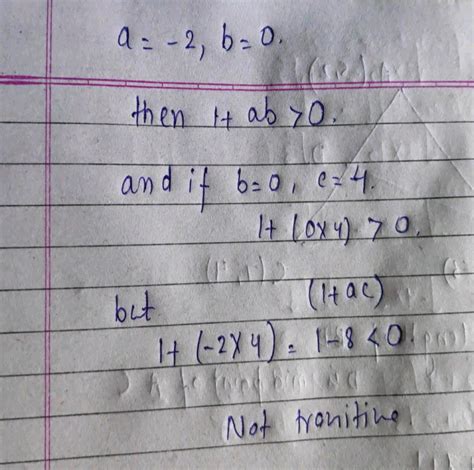 a = -2, b = 0.
then 1+ ab > 0.
and if b=0, c=4.
1+ (0×4) > 0.
but (1+ac)
1+ (-2×4) = 1-8 < 0.
Not tranitine.